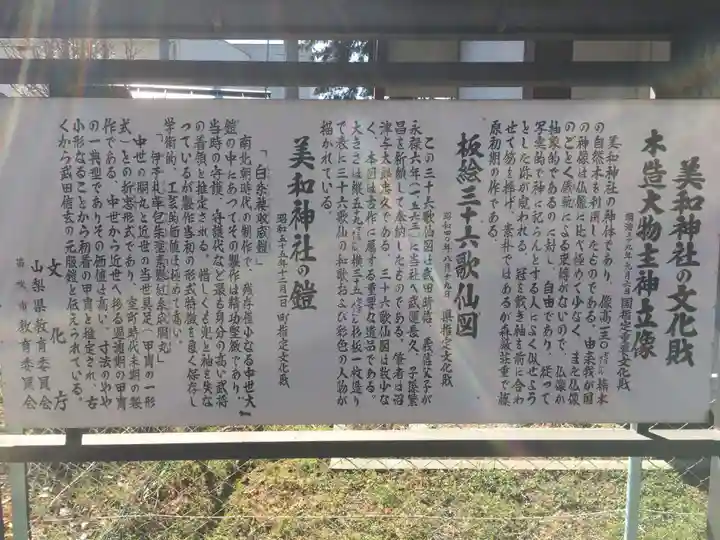 美和神社の文化財
木造大物主神立像
明治三十九年九月六日 国指定重要文化財
美和神社の神体であり、像高三〇
の自然木を利用したものである。由来我が国
の神像は仏像に比べ極めて少なく、また仏像
のごとく儀軌による束縛がないので、仏像が
抽象的であるのに対し、自由であり、従って
写実的で神に祀らんとする人によく似せよう
とした跡が窺われる。冠を戴き袖を前に合わ
せて笏を捧げ、素朴ではあるが森厳荘重で藤
原初期の作である。
板絵三十六歌仙図
昭和四〇年八月十九日 県指定文化財
この三十六歌仙図は武田晴信、義信父子が
永禄六年(一五六三)に当社へ武運長久、子孫繁
昌を祈願して奉納したものである。筆者は沼
津与太郎忠久である。三十六歌仙図は数少な
く、本図は古作に属する重要な遺品である。
大きさは縦五九 横三十五 杉板一枚造り
で表に三十六歌仙の和歌および彩色の人物が
描かれている。
美和神社の鎧
昭和五十五年十二月一日 町指定文化財
「白糸褄取威鎧」
南北朝時代の製作で、残存惟少なる中世大
鎧の中にあってその製作は精功堅緻であり、
当時の守護、守護代など最も身分の高い武将
の着領と推定される。惜しくも兜と袖を失な
っているが製作当初の形式特徴を良く保存し
学術的、工芸的価値は極めて高い。
「朱塗紅糸威胴丸
中世の胴丸と近世の当世具足(甲冑の一形
式)との折衷形式であり、室町時代末期の製
作である。中世から近世へ移る過渡期の甲冑
の一典型でありその価値は高い。寸法のやや
小形なることから初着の甲冑と推定され、古
くから武田信玄の元服鎧と伝えられている。
文化庁
山梨県教育委員会
笛吹市教育委員会